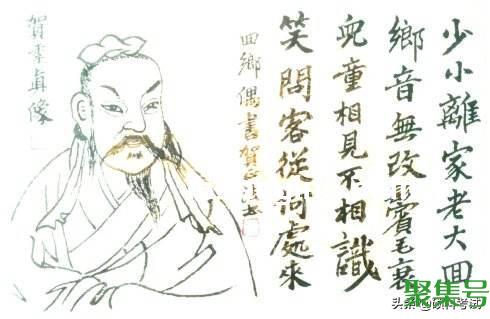 少小離家老大回
鄉音無改鬢毛衰
兒童相見不相識
笑問客從何處來
回鄉偶書賀
賀季真像
聚集号
头条